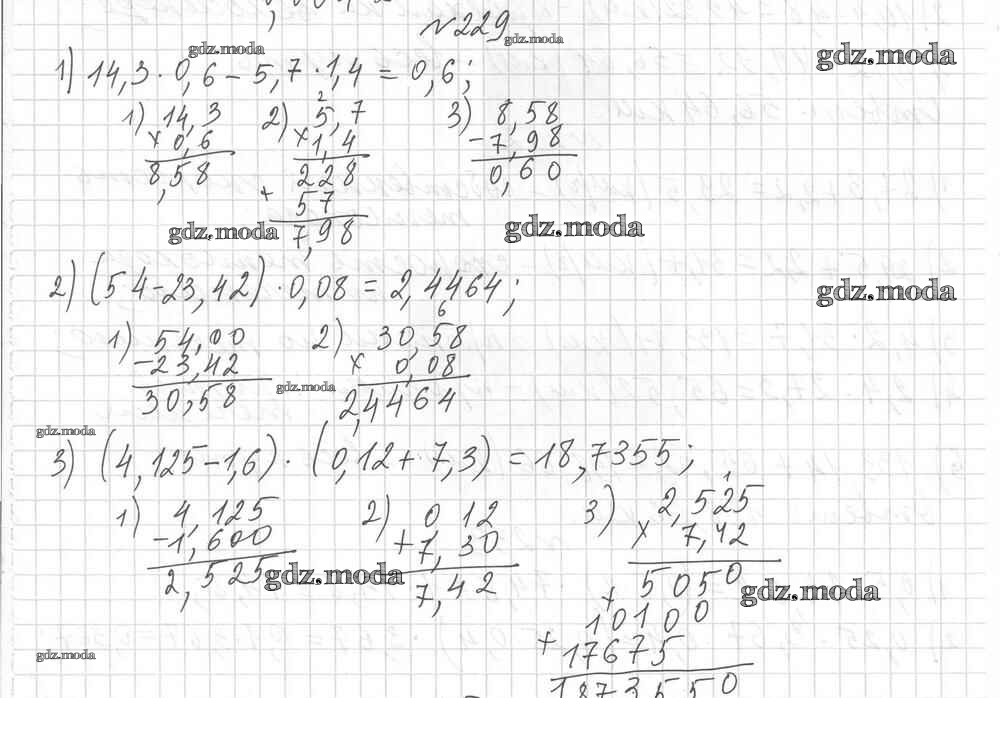 №229
gdz.moda
gdz.moda
gdz.moda
1) 14,3 · 0,6 – 5,7 · 1,4 = 0,6;
1) 14,3
× 0,6
8,58
2) 5,7
2
× 1,4
228
+ 57
7,98
3) 8,58
– 7,98
0,60
gdz.moda
gdz.moda
2) (54 – 23,42) · 0,08 = 2,4464;
gdz.moda
1) 54,00
– 23,42
30,58
2) 30,58
6
× 0,08
2,4464
gdz.moda
gdz.moda
3) (4,125 – 1,6) · (0,12 + 7,3) = 18,7355;
1) 4,125
– 1,600
2,525
2) 0 12
+ 7,30
7,42
3) 2,525
1
× 7,42
5050
+ 10100
+ 17675
1873550
gdz.moda
gdz.moda
gdz.moda